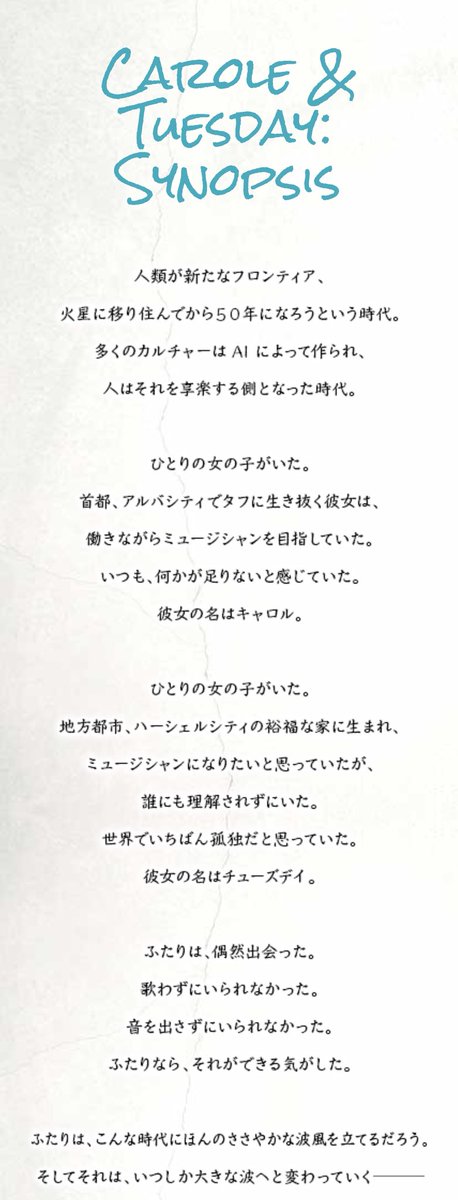 CAROLE &
TUESDAY:
SYNOPSIS
人類が新たなフロンティア、
火星に移り住んでから50年になろうという時代。
多くのカルチャーは AI によって作られ、
人はそれを享楽する側となった時代。
ひとりの女の子がいた。
首都、アルバシティでタフに生き抜く彼女は、
働きながらミュージシャンを目指していた。
いつも、何かが足りないと感じていた。
彼女の名はキャロル。
ひとりの女の子がいた。
地方都市、ハーシェルシティの裕福な家に生まれ、
ミュージシャンになりたいと思っていたが、
誰にも理解されずにいた。
世界でいちばん孤独だと思っていた。
彼女の名はチューズデイ。
ふたりは、偶然出会った。
歌わずにいられなかった。
音を出さずにいられなかった。
ふたりなら、それができる気がした。
ふたりは、こんな時代にほんのささやかな波風を立てるだろう。
そしてそれは、いつしか大きな波へと変わっていく———